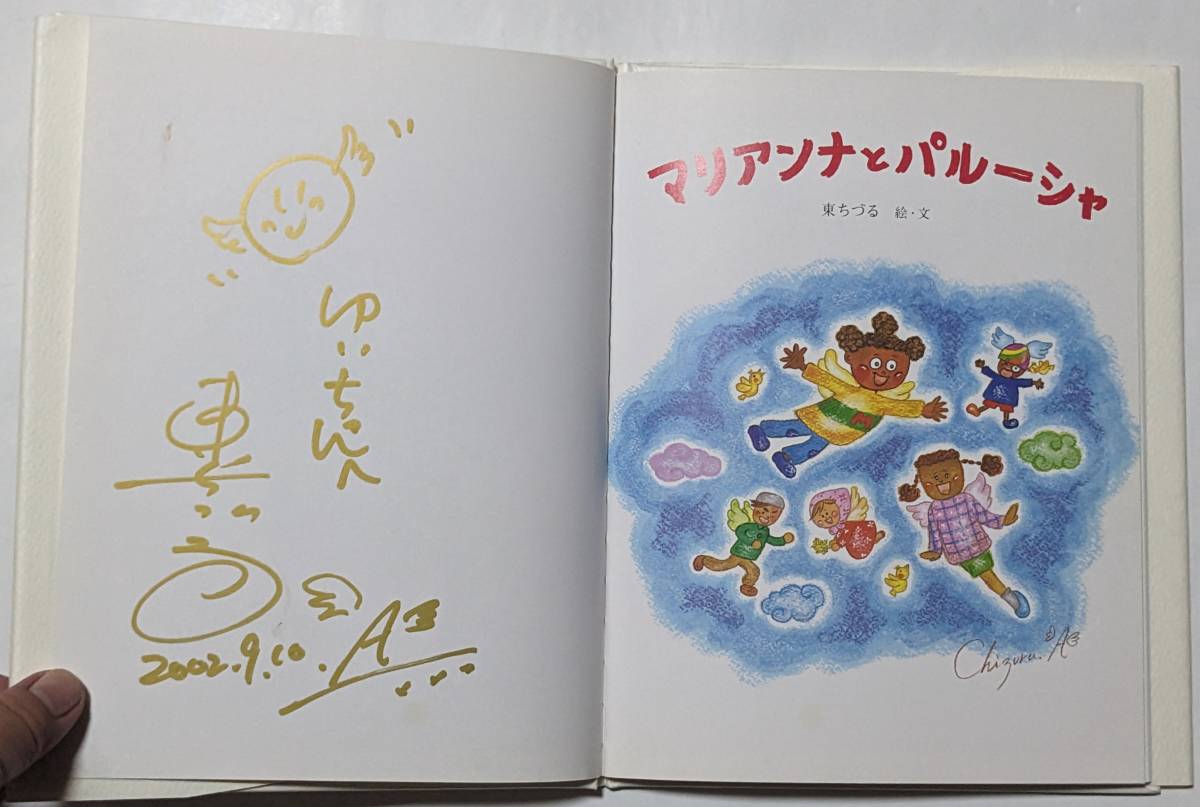 ゆいちゃんへ
東ちづる
2002.9.10.
マリアンナとパルーシャ
東ちづる 絵・文
Chizuru.A